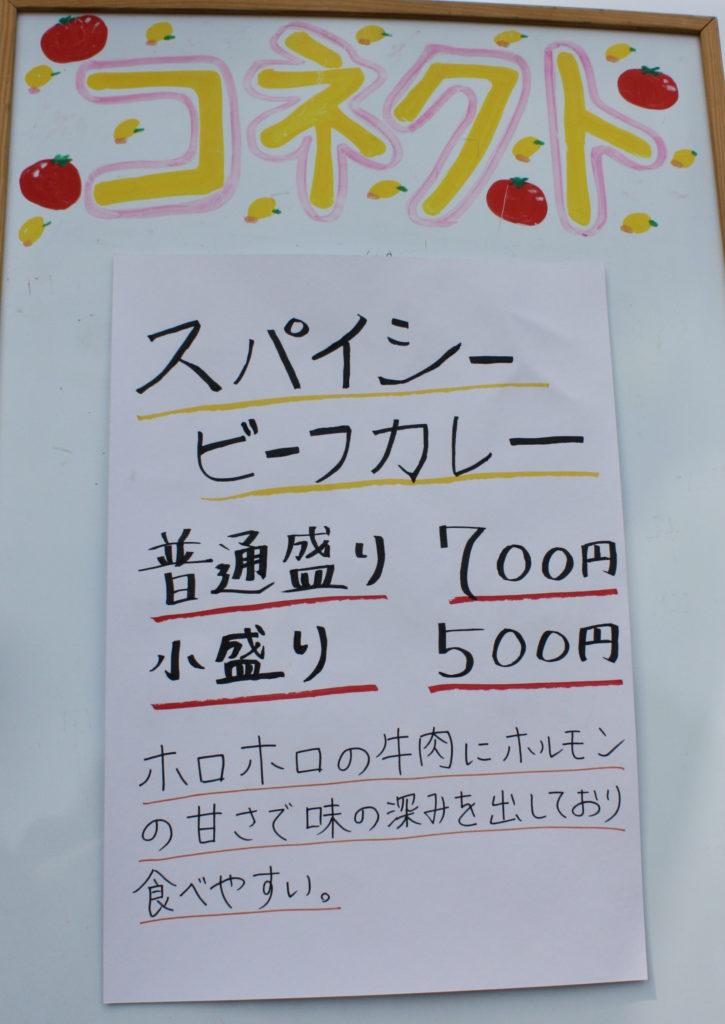 コネクト
スパイシー
ビーフカレー
普通盛り 700円
小盛り 500円
ホロホロの牛肉にホルモン
の甘さで味の深みを出しており
食べやすい。